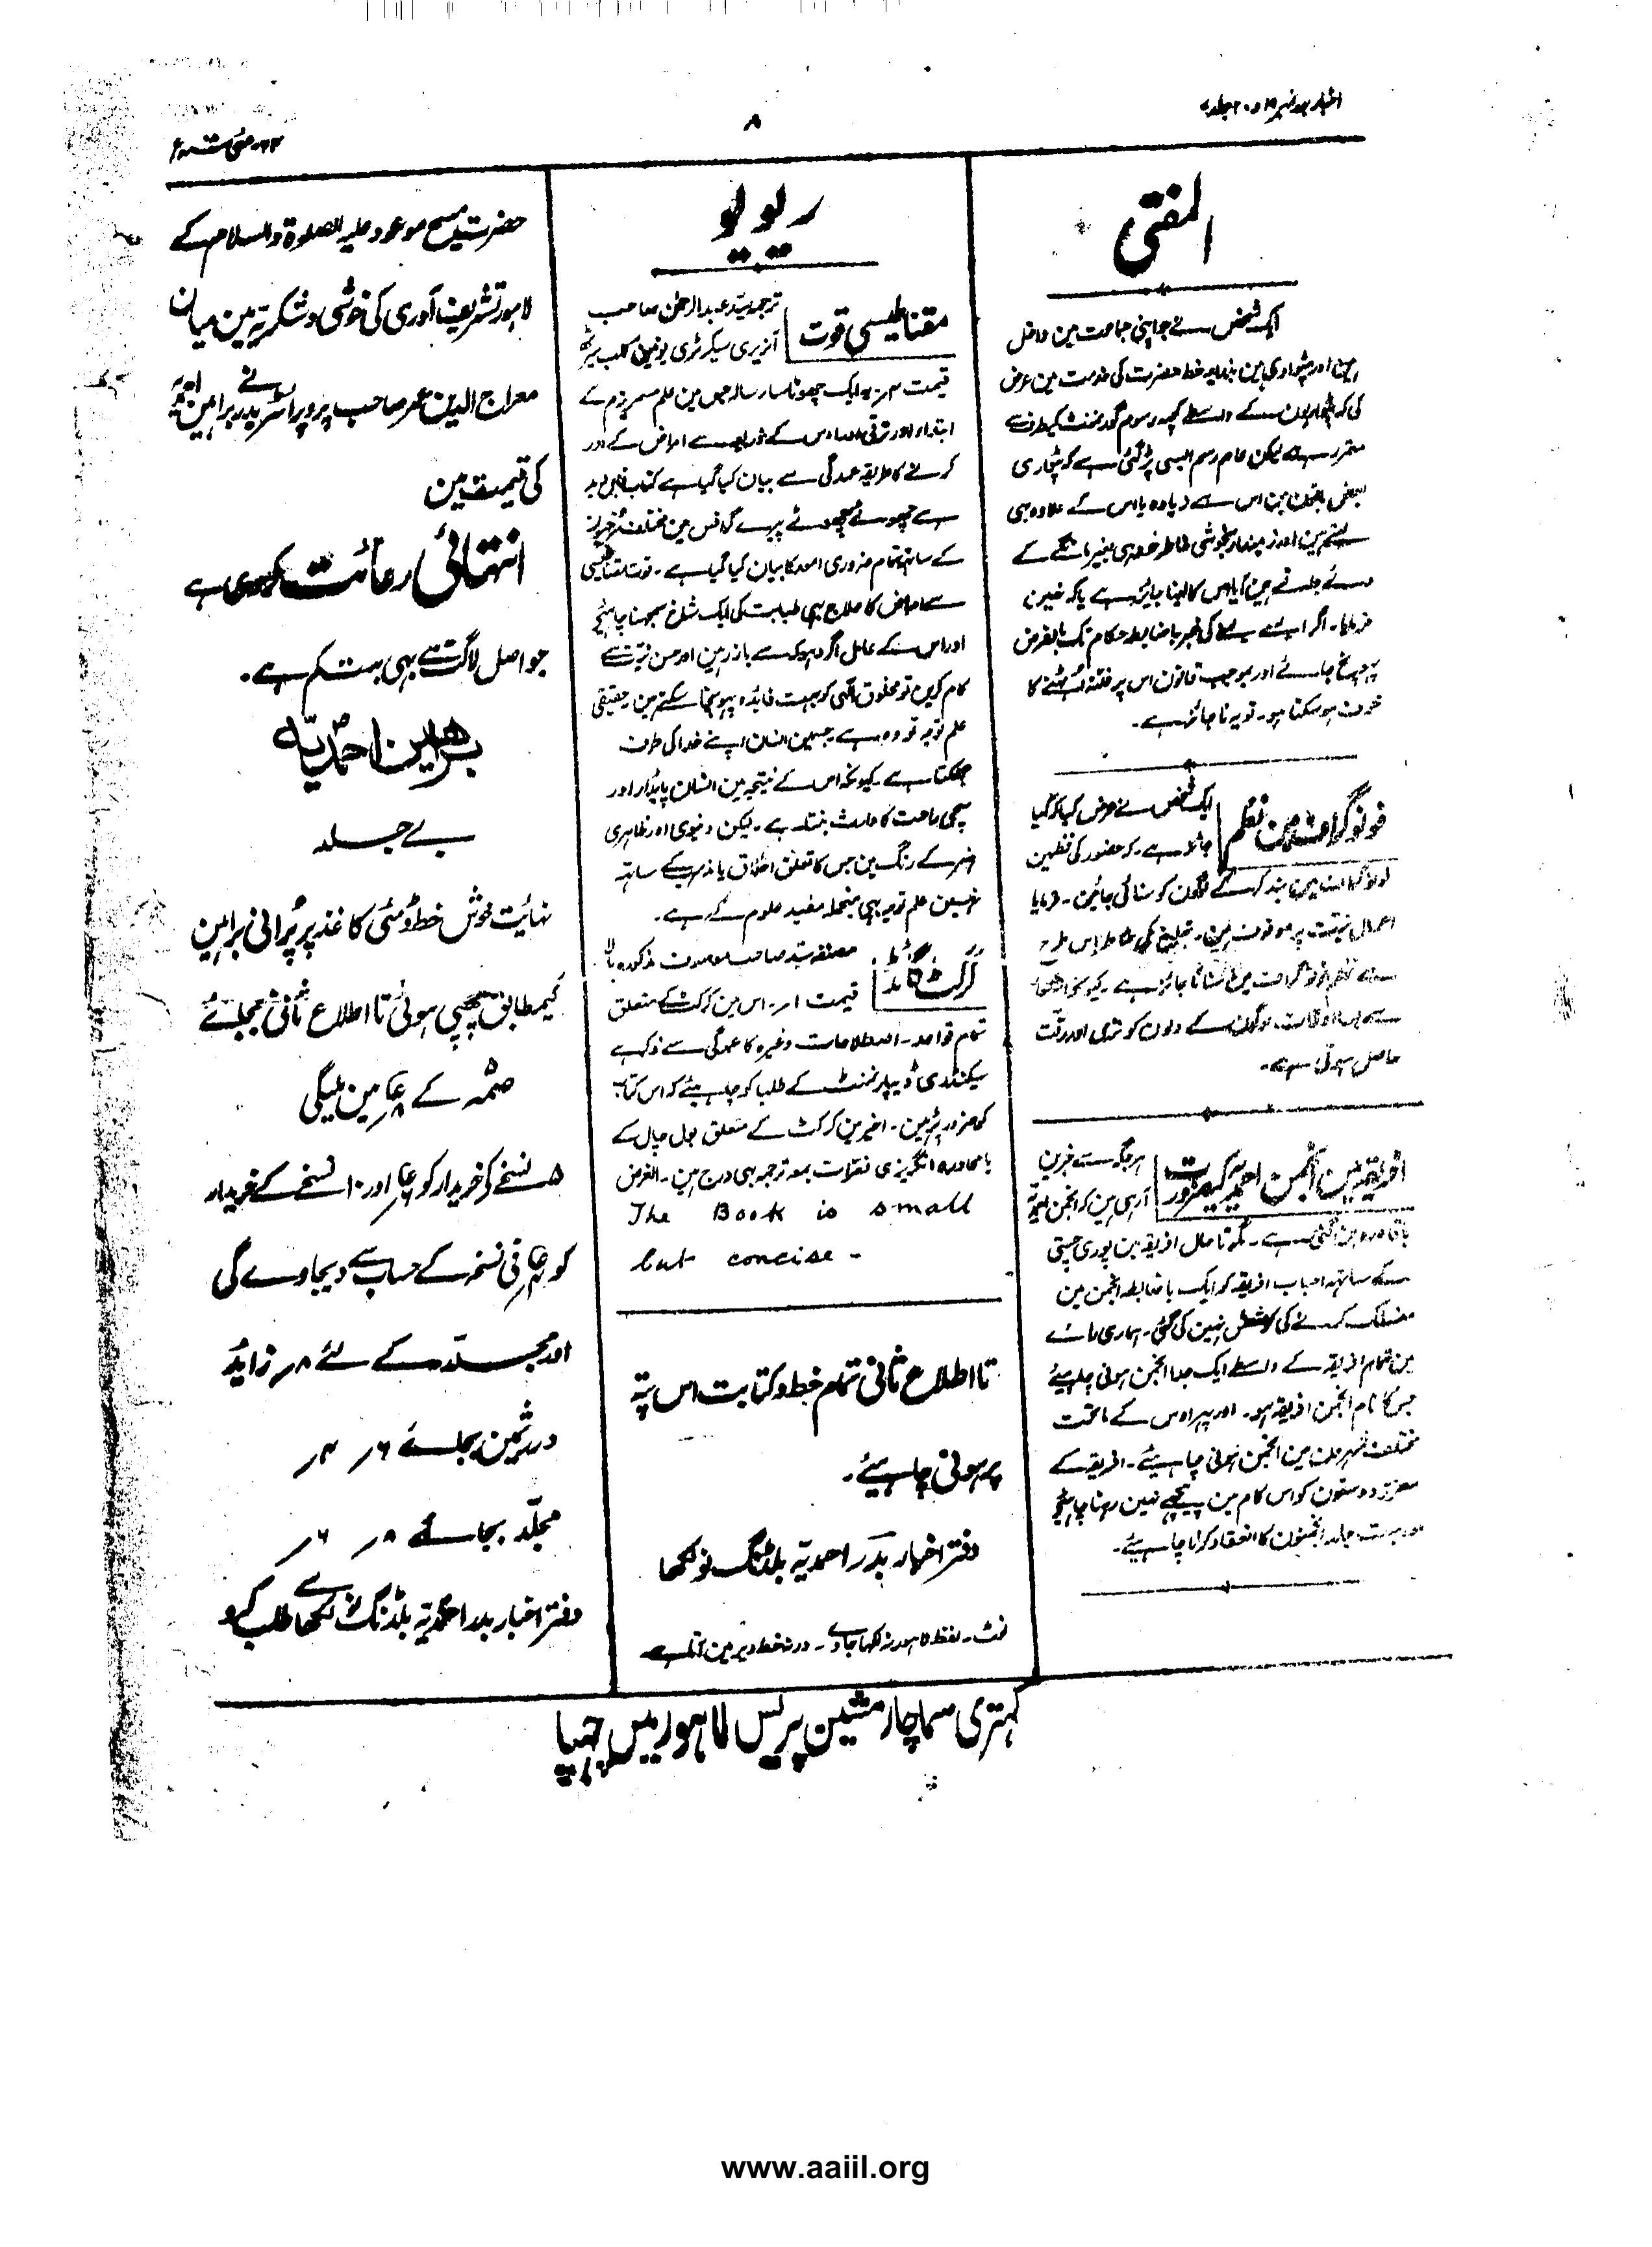 اخبار بدر نمبر ۱۹ و ۲۰ جلد ۷
۸
۲۴ مئی
المفتی
ایک شخص نے جو اپنی جماعت مین داخل
ہین اور پٹواری ہین بذریعہ خط حضرت کی خدمت مین عرض
کی کہ پٹواریون کے واسطے کچھ رسوم گورنمنٹ کیطرف سے
مقرر ہے لیکن عام رسم ایسی پڑ گئی ہے کہ پٹواری
بعض باتون مین اس سے زیادہ یا اس کے علاوہ بہی
لیتے ہین اور زمیندار بخوشی خاطر خود ہی بغیر مانگے کے
دئے جاتے ہین آیا اس کا لینا جائز ہے یا کہ نہین
فرمایا۔ اگر ایسے لینے کی خبر باضابطہ حکام تک بالفرض
پہونچ جائے اور بموجب قانون اس پر فتنہ اُٹہنے کا
خوف ہو سکتا ہو۔ تو یہ ناجائز ہے۔
فونوگراف مین نظم
ایک شخص نے عرض کیا کہ کیا
جائز ہے۔ کہ حضور کی نظمین
فونوگراف مین بند کر کے لوگون کو سنائی جائین۔ فرمایا
اعمال نیت پر موقوف ہین۔ تبلیغ کی خاطر اس طرح
سے نظم فونوگراف مین سنانا جائز ہے۔ کیونکہ اشعار
سے بسا اوقات لوگون کے دلون کو نرمی اور رقّت
حاصل ہوتی ہے۔
افریقہ مین انجمن احمدیہ کی ضرورت
ہر جگہ سے خبرین
آ رہی ہین کہ انجمن احمدیہ
باقاعدہ بن گئی ہے۔ مگر تا حال افریقہ مین پوری چستی
کے ساتہ احباب افریقہ کو ایک باضابطہ انجمن مین
منسلک کرنے کی کوشش نہین کی گئی۔ ہماری رائے
مین تمام افریقہ کے واسطے ایک جدا انجمن ہونی چاہیئے
جس کا نام انجمن افریقہ ہو۔ اور پہر اوس کے ماتحت
مختلف شہرون مین انجمن ہونی چاہیئے۔ افریقہ کے
معزز دوستون کو اس کام مین پیچھے نہین رہنا چاہئیے
اور بہت جلد انجمنون کا انعقاد کرنا چاہیئے۔
ریویو
مقناطیسی قوت
ترجمہ سید عبدالرحمٰن صاحب
آنریری سیکرٹری یونین کلب
قیمت ۳ر یہ ایک چھوٹا سا رسالہ جس مین علم مسمریزم کے
ابتداء اور ترقی اور اوس کے ذریعہ سے امراض کے دور
کرنے کا طریقہ عمدگی سے بیان کیا گیا ہے کتاب قابل دید
ہے چھوٹے چھوٹے پیرے گرافس مین مختلف
کے ساتہ تمام ضروری امور کا بیان کیا گیا ہے۔ قوت مقناطیسی
سے امراض کا علاج بہی طبابت کی ایک شاخ سمجہنا چاہئیے
اور اس کے عامل اگر دہوکہ سے باز رہین اور حسن نیت سے
کام کرین تو مخلوق الٰہی کو بہت فایدہ پہونچا سکتے ہین حقیقی
علم توجہ تو وہ ہے جسمین انسان اپنے خدا کی طرف
جہکتا ہے۔ کیونکہ اس کے نتیجہ مین انسان پائیدار اور
سچی راحت کا وارث بنتا ہے۔ لیکن دنیوی اور ظاہری
ہنر کے رنگ مین جس کا تعلق اخلاق یا مذہب کے ساتہ
نہین علم توجہ بہی منجملہ مفید علوم کے ہے۔
کرکٹ گائڈ
مصنفہ سید صاحب موصوف مذکورہ بالا
قیمت ۱ر۔ اس مین کرکٹ کے متعلق
تمام قواعد۔ اصطلاحات وغیرہ کا عمدگی سے ذکر ہے
سیکنڈری ڈیپارٹمنٹ کے طلبا کو چاہیئے کہ اس کتاب
کو ضرور پڑہین۔ اخیر مین کرکٹ کے متعلق بول چال کے
بامحاورہ انگریزی فقرات بمعہ ترجمہ بہی درج ہین۔ الغرض
The Book is small
but concise -
تا اطلاع ثانی تمام خط و کتابت اس پتہ
پر ہونی چاہیئے۔
دفتر اخبار بدر احمدیہ بلڈنگ نولکھا
نوٹ۔ لفظ لاہور نہ لکہا جاوے۔ ورنہ خط دیر مین ملتا ہے
حضرت مسیح موعود علیہ الصلوۃ والسلام کے
لاہور تشریف آوری کی خوشی و شکریہ مین میان
معراج الدین عمر صاحب پروپرائٹر بدر نے براہین احمدیہ
کی قیمت مین
انتہائی رعائت کر دی ہے
جو اصل لاگت سے بہی بہت کم ہے۔
براہین احمدیّہ
بے جلد
نہائیت خوش خط ومٹی کاغذ پر پُرانی براہین
کیمطابق چھپی ہوئی تا اطلاع ثانی بجائے
کے مین ملیگی
۵ نسخے کی خریدار کو اور ۱۰ نسخے کے خریدار
کو فی نسخہ کے حساب سے دیجاوے گی
اور مجلّد کے لئے ۸ر زایٔد
درثمین بجائے ۶ر ۴ر
مجلّد بجائے ۸ر ۶ر
دفتر اخبار بدر احمدیہ بلڈنگ نولکھا سے طلب کرو
کہتری سماچار مشین پریس لاہور میں چھپا
www.aaiil.org